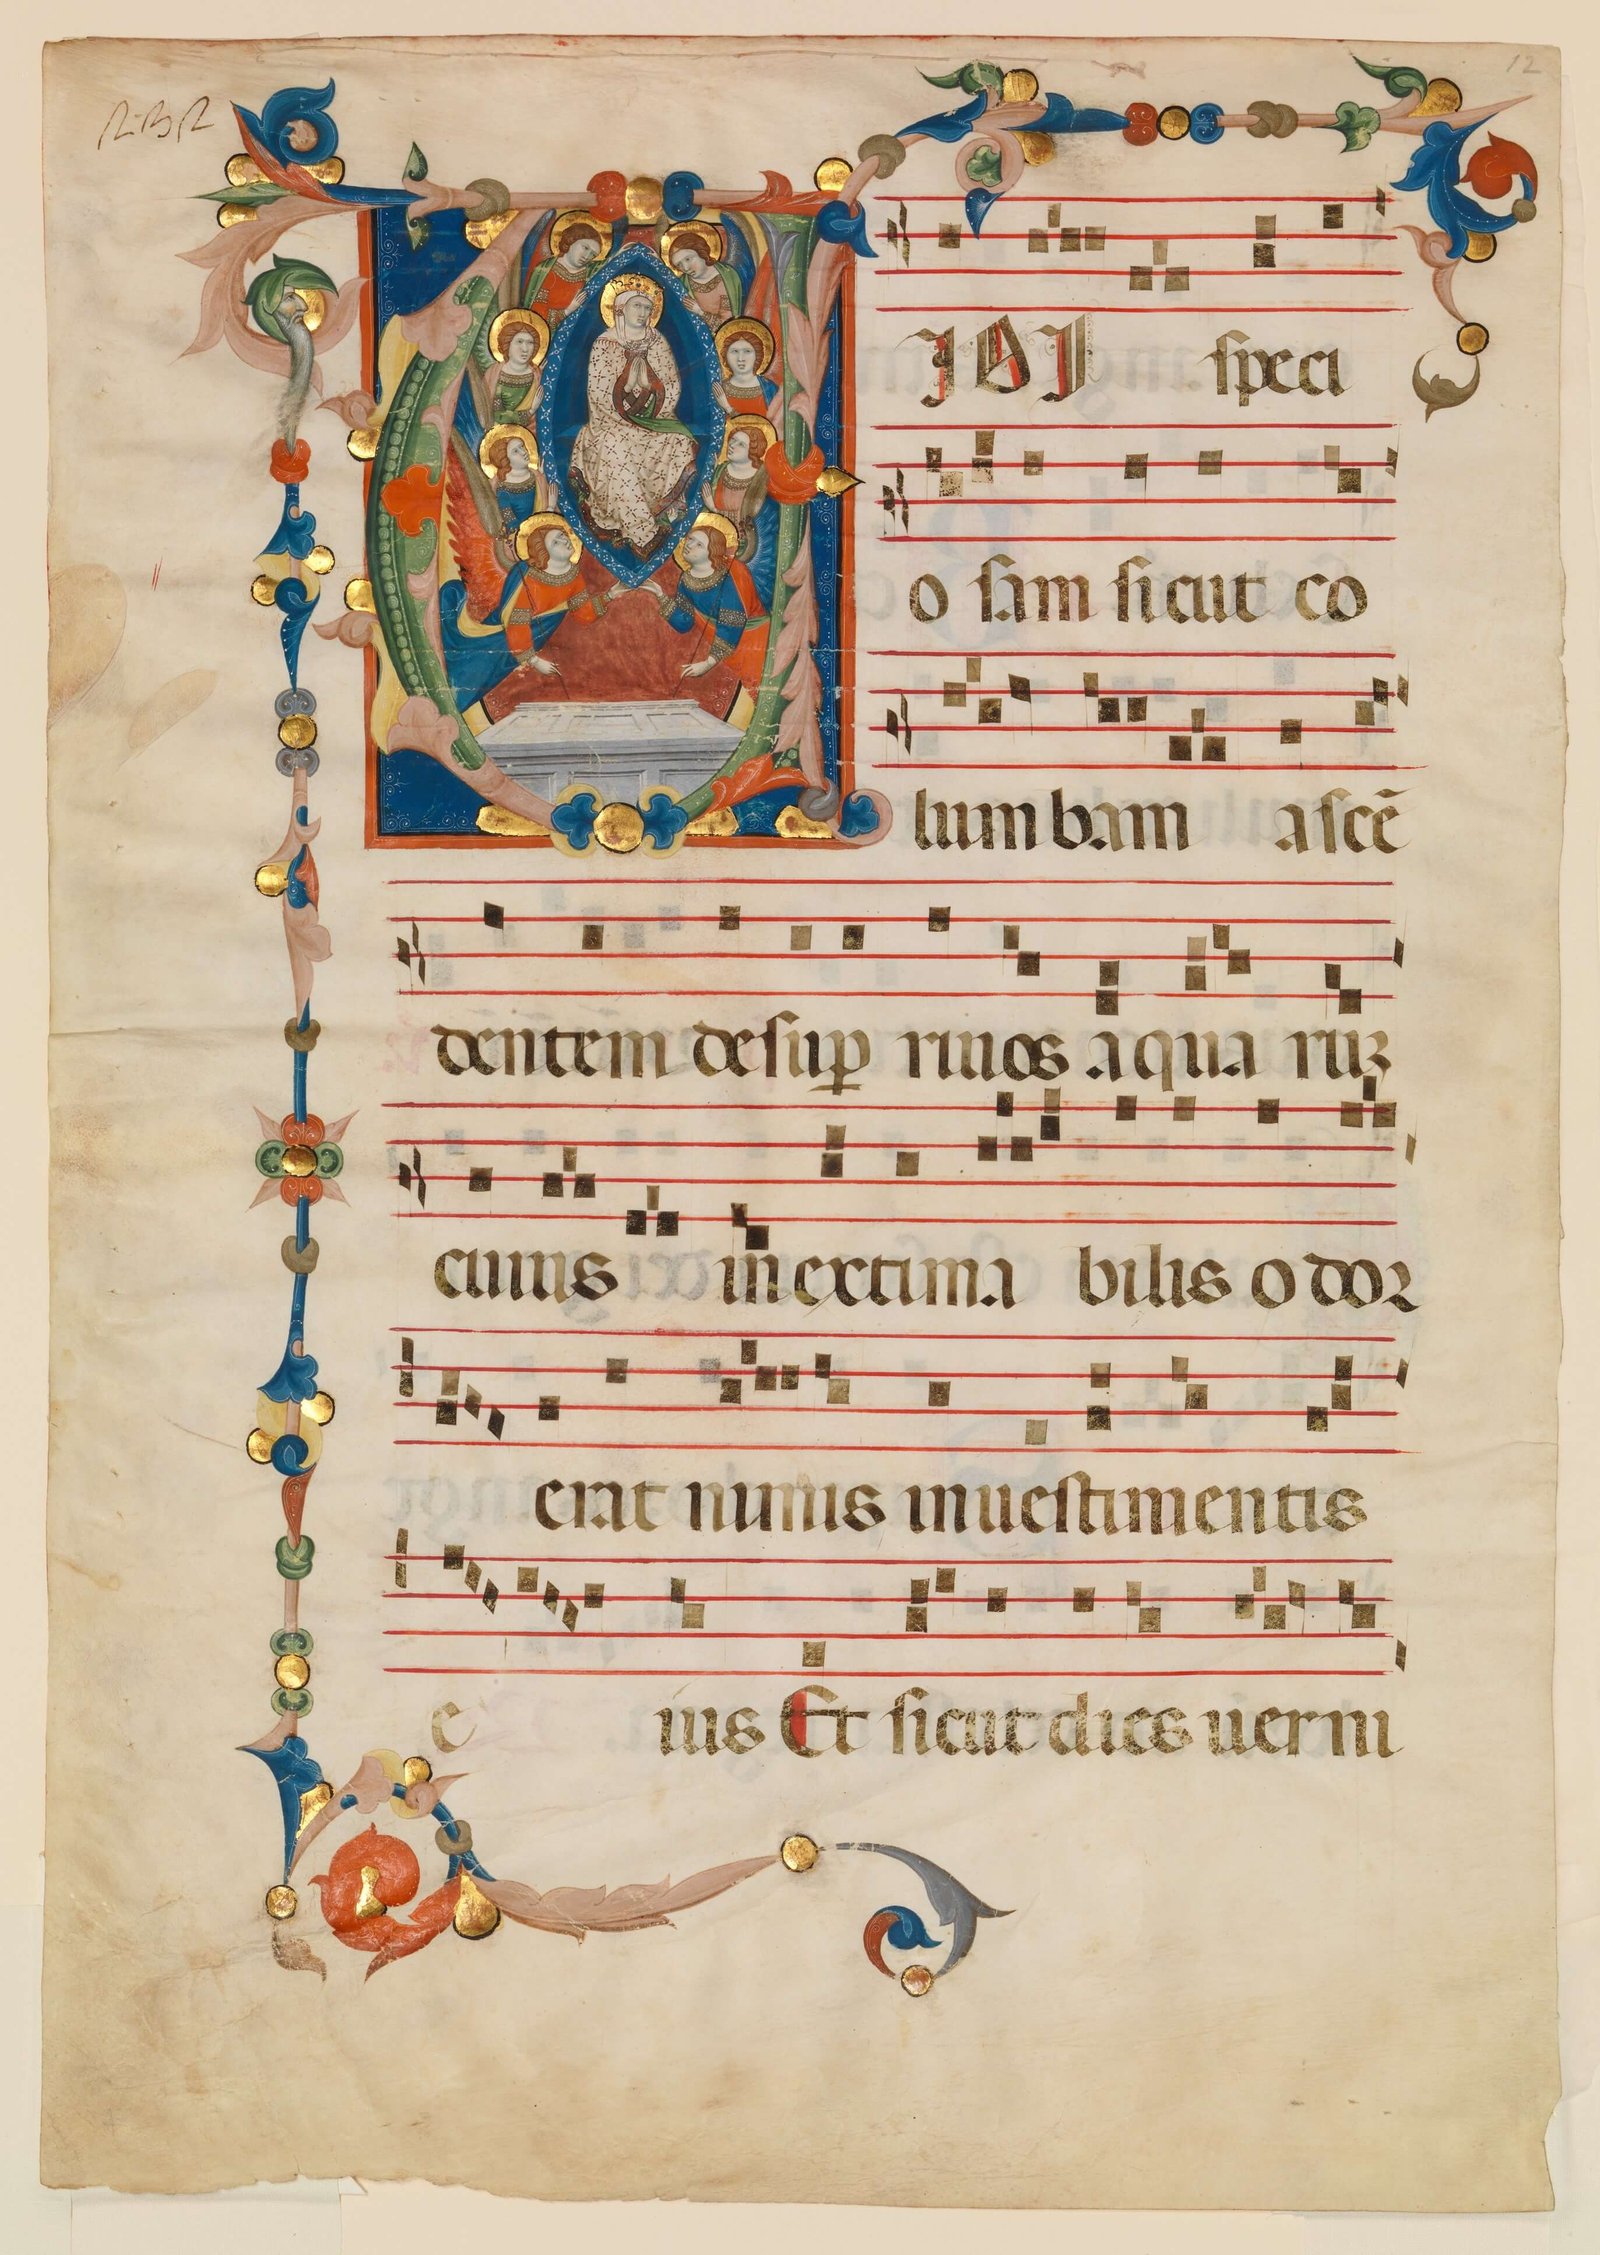 12
VIDI speci
o sam sicut co
lum bam ascē
dentem desup riuos aqua ruꝫ
cuius in extima bilis odor
erat nimis in uestimentis
e ius Et sicut dies uerni